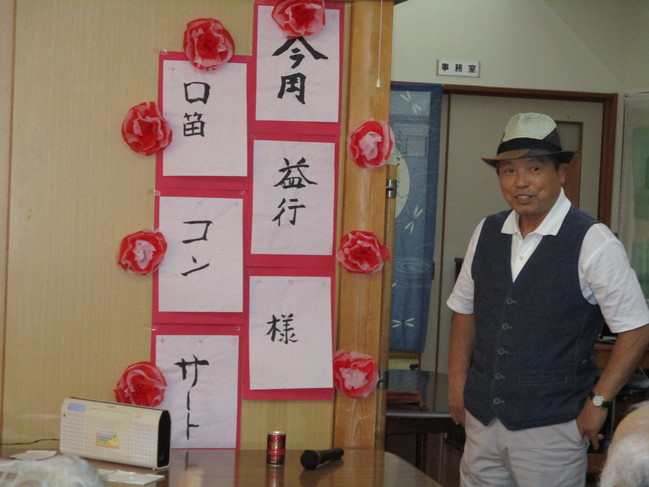 今田
益行
様
口笛
コン
サート
事務室